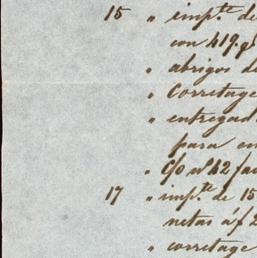 15 " imp.te de
con 419.
" abrigos de
" Corretage
" entregad
para en
" C/o nº 42 fa
17 " imp.te de 15
netas á f 2
" corretage